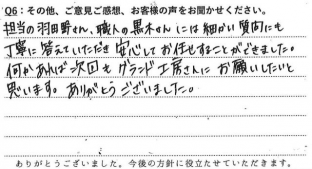 Q6：その他、ご意見ご感想、お客様の声をお聞かせください。
担当の羽田野さん、職人の黒木さんには細かい質問にも
丁寧に答えていただき安心してお任せすることができました。
何かあれば次回もグランド工房さんにお願いしたいと
思います。ありがとうございました。
ありがとうございました。今後の方針に役立たせていただきます。